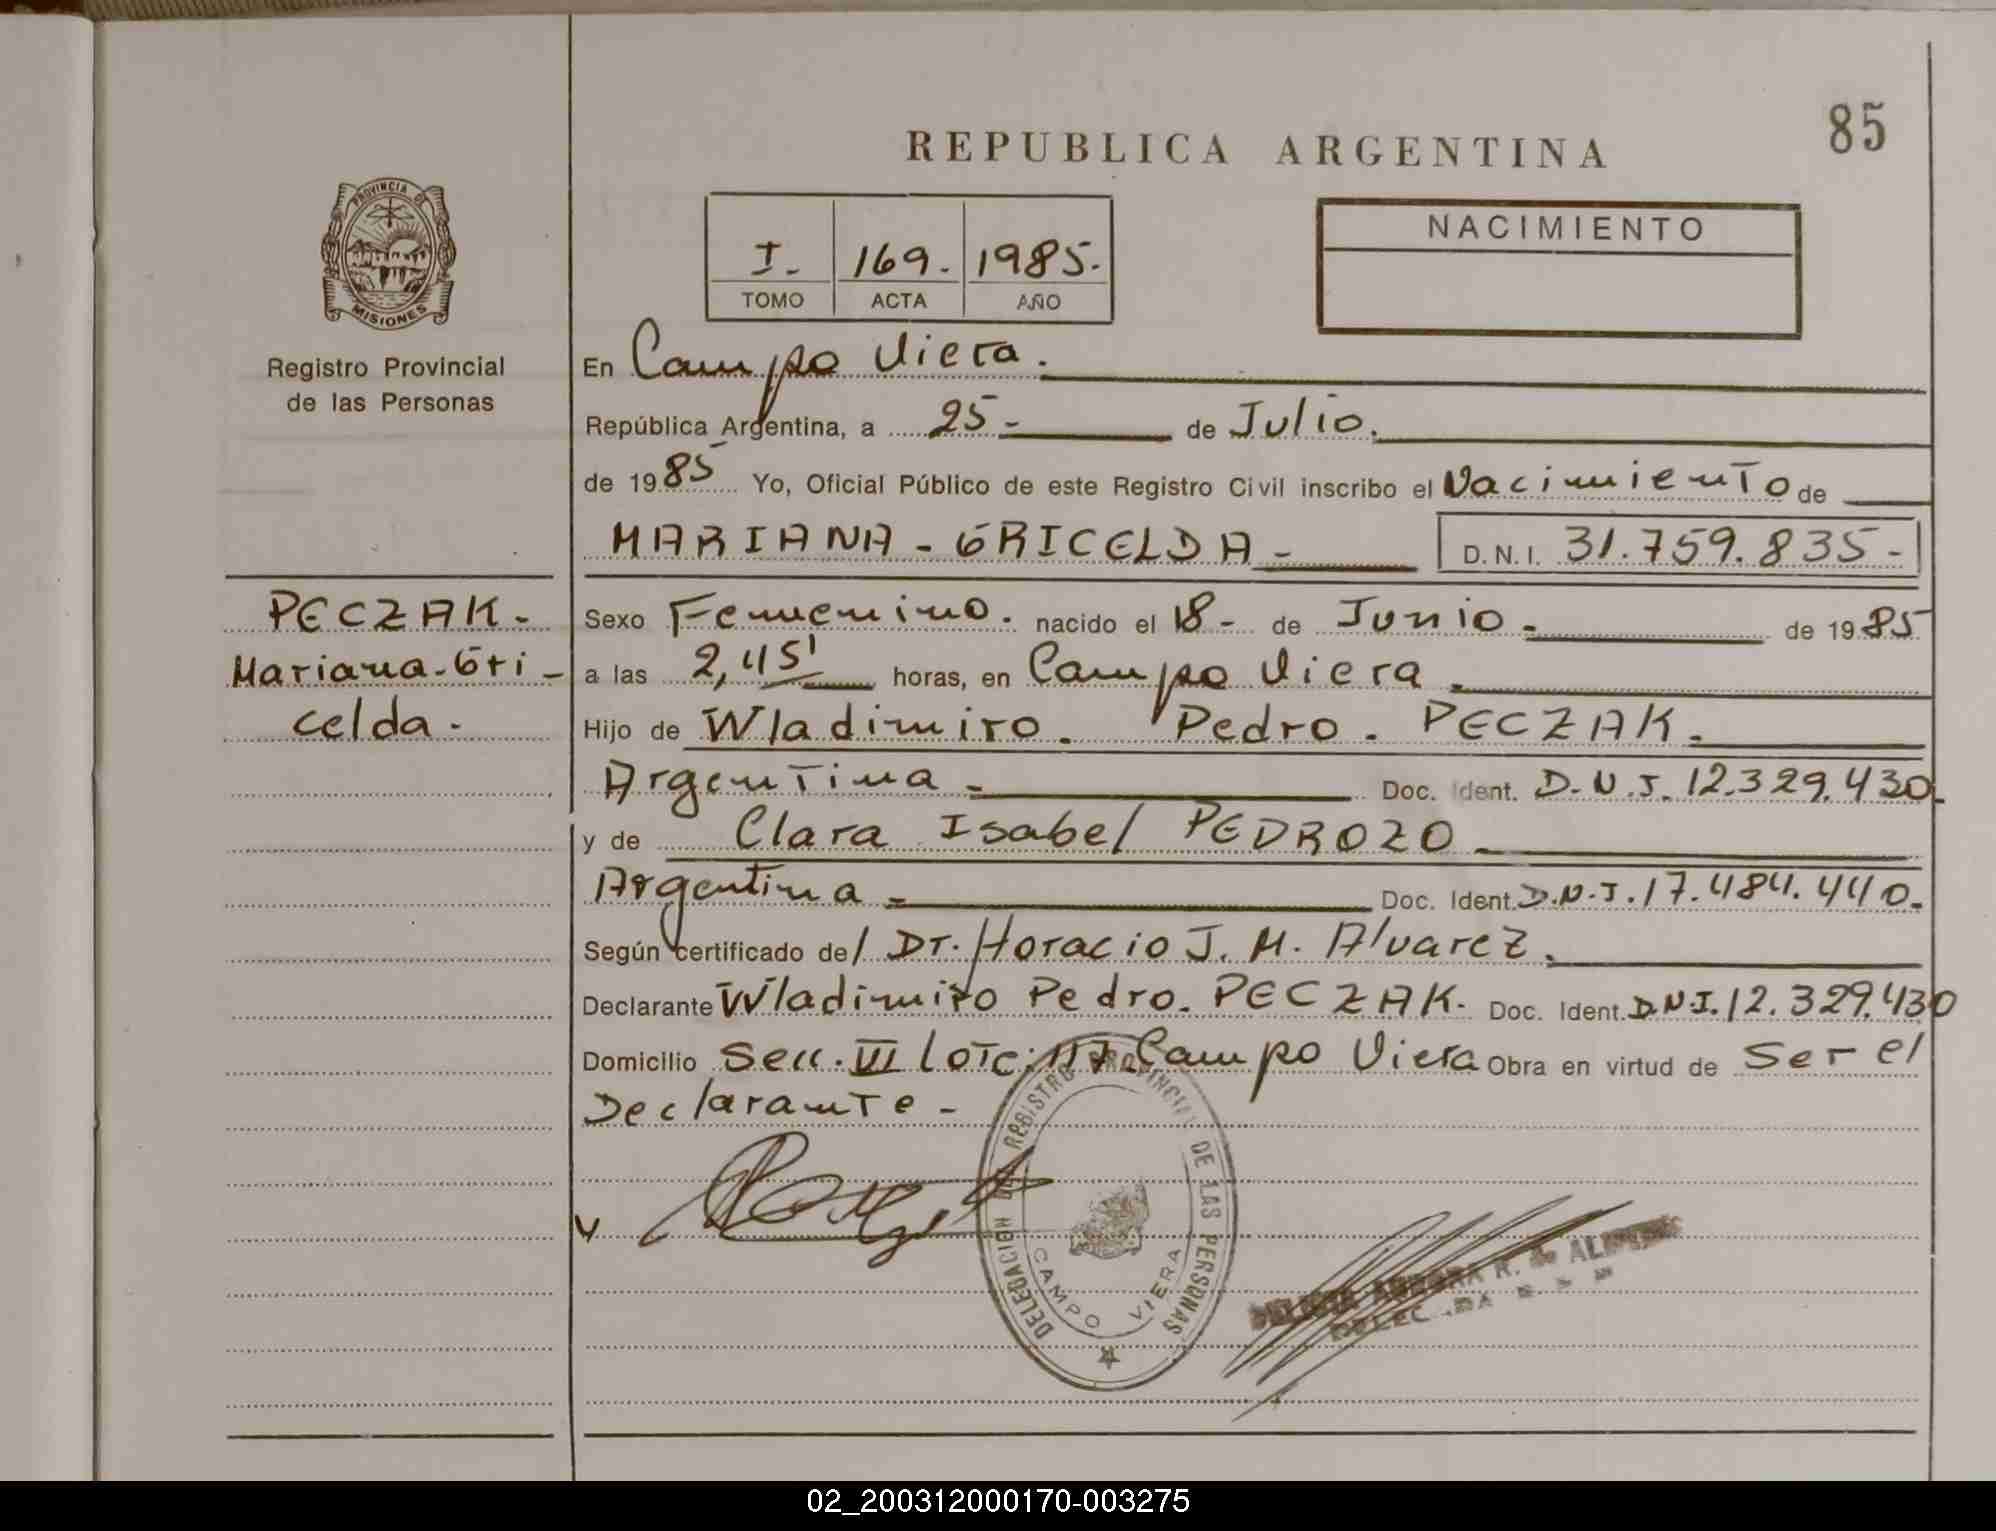 85
REPUBLICA ARGENTINA
PROVINCIA DE
MISIONES
Registro Provincial
de las Personas
I.- 169.- 1985.-
TOMO ACTA AÑO
NACIMIENTO
En Campo Viera.
República Argentina, a 25- de Julio.
de 1985 Yo, Oficial Público de este Registro Civil inscribo el Nacimiento de
MARIANA - GRICELDA - D.N.I. 31.759.835-
PECZAK-
Mariana-Gri-
celda-
Sexo Femenino. nacido el 18- de Junio- de 1985
a las 2,45' horas, en Campo Viera.
Hijo de Wladimiro. Pedro. PECZAK.
Argentina- Doc. Ident. D.N.I. 12.329.430.
y de Clara Isabel PEDROZO
Argentina- Doc. Ident. D.N.I. 17.484.440.
Según certificado del Dr. Horacio J. M. Alvarez.
Declarante Wladimiro Pedro. PECZAK- Doc. Ident. D.N.I. 12.329.430
Domicilio Secc. VI Lote: 117 Campo Viera Obra en virtud de Ser el
Declarante-
DELEGACION REGISTRO PROVINCIAL DE LAS PERSONAS
CAMPO VIERA
02_200312000170-003275